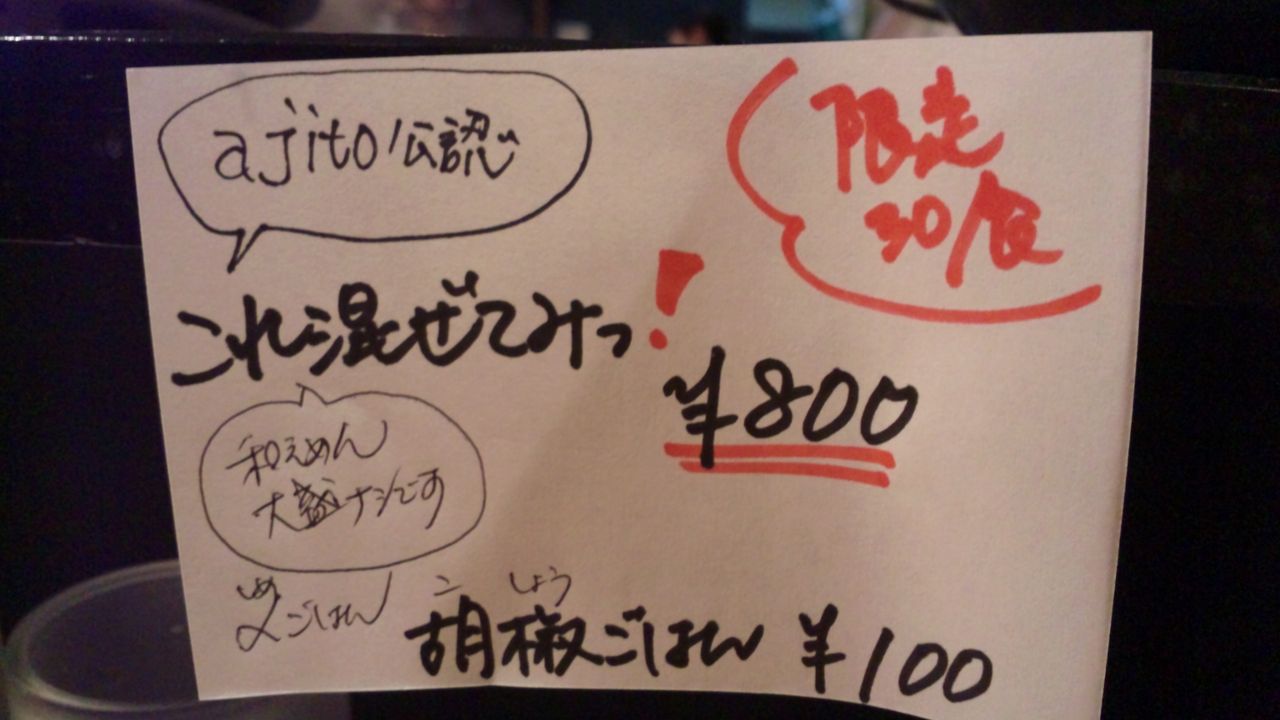 ajito公認
限定
30食
これ混ぜてみっ!
¥800
和えめん
大盛ナシです
しめ
〆ごはん
こ しょう
胡椒ごはん ¥100